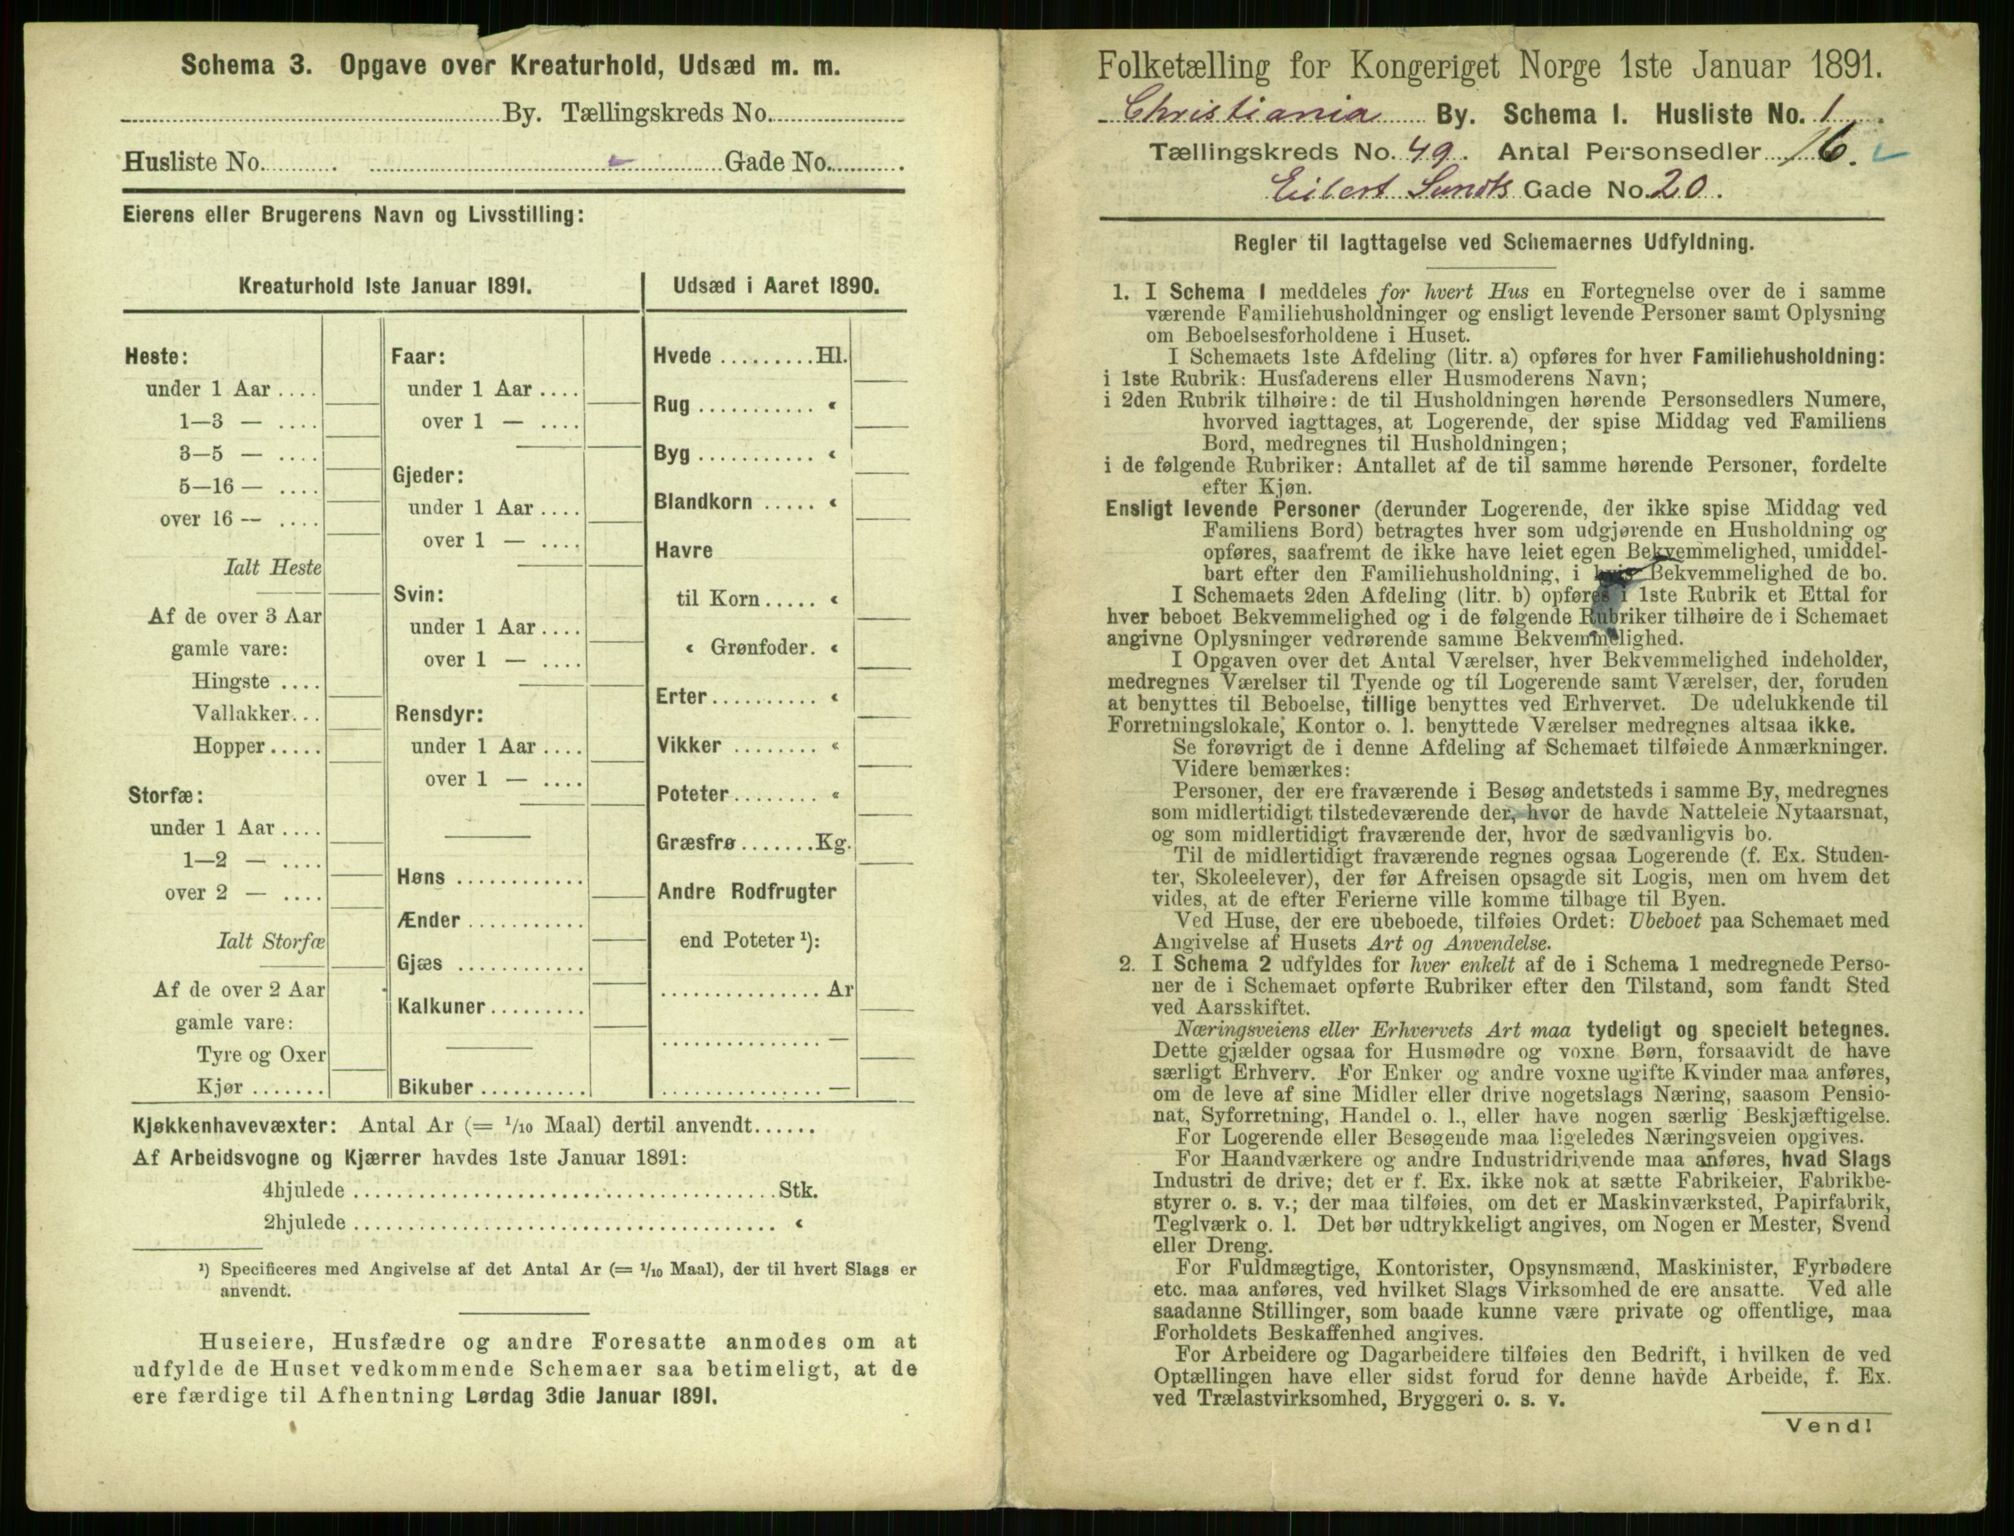 Schema 3. Opgave over Kreaturhold, Udsæd m. m.
By. Tællingskreds No.
Husliste No. Gade No.
Eierens eller Brugerens Navn og Livsstilling:
Kreaturhold 1ste Januar 1891.
Heste:
under 1 Aar ....
1—3 — ....
3—5 — ....
5—16 — ....
over 16 — ....
Ialt Heste
Af de over 3 Aar
gamle vare:
Hingste ....
Vallakker...
Hopper.....
Storfæ:
under 1 Aar ....
1—2 — ....
over 2 — ....
Ialt Storfæ
Af de over 2 Aar
gamle vare:
Tyre og Oxer
Kjør .......
Faar:
under 1 Aar ....
over 1 — ....
Gjeder:
under 1 Aar ....
over 1 — ....
Svin:
under 1 Aar ....
over 1 — ....
Rensdyr:
under 1 Aar ....
over 1 — ....
Høns ............
Ænder ...........
Gjæs ............
Kalkuner.........
Bikuber ..........
Udsæd i Aaret 1890.
Hvede .........Hl.
Rug ........... «
Byg ........... «
Blandkorn ..... «
Havre
til Korn ..... «
« Grønfoder. «
Erter.......... «
Vikker ........ «
Poteter........ «
Græsfrø .......Kg.
Andre Rodfrugter
end Poteter ¹):
............... Ar
............... —
............... —
Kjøkkenhavevæxter: Antal Ar (= 1/10 Maal) dertil anvendt......
Af Arbeidsvogne og Kjærrer havdes 1ste Januar 1891:
4hjulede ..................................Stk.
2hjulede .................................. «
¹) Specificeres med Angivelse af det Antal Ar (= 1/10 Maal), der til hvert Slags er
anvendt.
Huseiere, Husfædre og andre Foresatte anmodes om at
udfylde de Huset vedkommende Schemaer saa betimeligt, at de
ere færdige til Afhentning Lørdag 3die Januar 1891.
Folketælling for Kongeriget Norge 1ste Januar 1891.
Christiania By. Schema 1. Husliste No. 1
Tællingskreds No. 49. Antal Personsedler 16.
Eilert Sundts Gade No. 20.
Regler til Iagttagelse ved Schemaernes Udfyldning.
1. I Schema 1 meddeles for hvert Hus en Fortegnelse over de i samme
værende Familiehusholdninger og ensligt levende Personer samt Oplysning
om Beboelsesforholdene i Huset.
I Schemaets 1ste Afdeling (litr. a) opføres for hver Familiehusholdning:
i 1ste Rubrik: Husfaderens eller Husmoderens Navn;
i 2den Rubrik tilhøire: de til Husholdningen hørende Personsedlers Numere,
hvorved iagttages, at Logerende, der spise Middag ved Familiens
Bord, medregnes til Husholdningen;
i de følgende Rubriker: Antallet af de til samme hørende Personer, fordelte
efter Kjøn.
Ensligt levende Personer (derunder Logerende, der ikke spise Middag ved
Familiens Bord) betragtes hver som udgjørende en Husholdning og
opføres, saafremt de ikke have leiet egen Bekvemmelighed, umiddel-
bart efter den Familiehusholdning, i hvis Bekvemmelighed de bo.
I Schemaets 2den Afdeling (litr. b) opføres i 1ste Rubrik et Ettal for
hver beboet Bekvemmelighed og i de følgende Rubriker tilhøire de i Schemaet
angivne Oplysninger vedrørende samme Bekvemmelighed.
I Opgaven over det Antal Værelser, hver Bekvemmelighed indeholder,
medregnes Værelser til Tyende og til Logerende samt Værelser, der, foruden
at benyttes til Beboelse, tillige benyttes ved Erhvervet. De udelukkende til
Forretningslokale, Kontor o. l. benyttede Værelser medregnes altsaa ikke.
Se forøvrigt de i denne Afdeling af Schemaet tilføiede Anmærkninger.
Videre bemærkes:
Personer, der ere fraværende i Besøg andetsteds i samme By, medregnes
som midlertidigt tilstedeværende der, hvor de havde Natteleie Nytaarsnat,
og som midlertidigt fraværende der, hvor de sædvanligvis bo.
Til de midlertidigt fraværende regnes ogsaa Logerende (f. Ex. Studen-
ter, Skoleelever), der før Afreisen opsagde sit Logis, men om hvem det
vides, at de efter Ferierne ville komme tilbage til Byen.
Ved Huse, der ere ubeboede, tilføies Ordet: Ubeboet paa Schemaet med
Angivelse af Husets Art og Anvendelse.
2. I Schema 2 udfyldes for hver enkelt af de i Schema 1 medregnede Perso-
ner de i Schemaet opførte Rubriker efter den Tilstand, som fandt Sted
ved Aarsskiftet.
Næringsveiens eller Erhvervets Art maa tydeligt og specielt betegnes.
Dette gjælder ogsaa for Husmødre og voxne Børn, forsaavidt de have
særligt Erhverv. For Enker og andre voxne ugifte Kvinder maa anføres,
om de leve af sine Midler eller drive nogetslags Næring, saasom Pensio-
nat, Syforretning, Handel o. l., eller have nogen særlig Beskjæftigelse.
For Logerende eller Besøgende maa ligeledes Næringsveien opgives.
For Haandværkere og andre Industridrivende maa anføres, hvad Slags
Industri de drive; det er f. Ex. ikke nok at sætte Fabrikeier, Fabrikbe-
styrer o. s. v.; der maa tilføies, om det er Maskinværksted, Papirfabrik,
Teglværk o. l. Det bør udtrykkeligt angives, om Nogen er Mester, Svend
eller Dreng.
For Fuldmægtige, Kontorister, Opsynsmænd, Maskinister, Fyrbødere
etc. maa anføres, ved hvilket Slags Virksomhed de ere ansatte. Ved alle
saadanne Stillinger, som baade kunne være private og offentlige, maa
Forholdets Beskaffenhed angives.
For Arbeidere og Dagarbeidere tilføies den Bedrift, i hvilken de ved
Optællingen have eller sidst forud for denne havde Arbeide, f. Ex.
ved Trælastvirksomhed, Bryggeri o. s. v.
Vend!